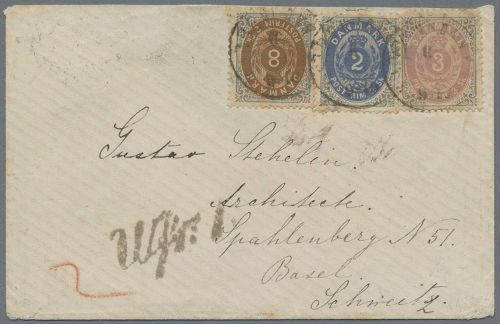 8
DANMARK
POSTFRIM
DANMARK
2
POSTFRIM
3
Gustav Stehelin.
Architect.
Spahlenberg N 51.
Basel.
Schweitz